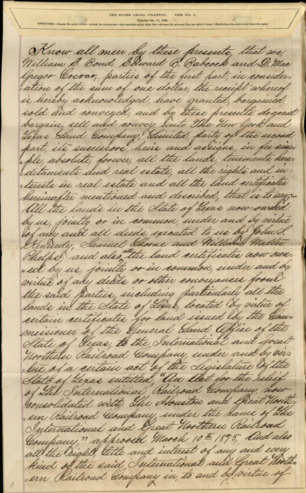 Know all men by these presents, that we
William E. Bond, Edward P. Babcock and D. Mac
Gregor Covar, parties of the first part, in consider-
ation of the sum of one dollar, the receipt whereof
is hereby acknowledged, have granted bargained
sold and conveyed, and by these presents do grant
bargain, sell and convey unto The New York and
Texas Land Company, Limited, party of the second
part, its successors, heirs and assigns in fee sim-
ple, absolute, forever, all the lands, tenements here-
ditaments and real estate, all the rights and in-
terests in real estate and all the land certificates
hereinafter mentioned and described, that is to say:
All the lands in the State of Texas now owned
by us, jointly or in common, under and by virtue
of any and all deeds executed to us by John S.
Kennedy, Samuel Thorne and William Walter
Phelps, and also the land certificates now own-
ed by us, jointly or in common, under and by
virtue of any deeds or other conveyances from
the said parties, including particularly all the
lands in the State of Texas, located by virtue of
certain certificates for land issued by the Com-
missioner of the General Land Office of the
State of Texas, to the International and Great
Northern Railroad Company, under and by vir-
tue of a certain act of the Legislature of the
State of Texas entitled, "An Act for the relief
of the International Railroad Company, now
consolidated with the Houston and Great North-
ern Railroad Company, under the name of the
International and Great Northern Railroad
Company," approved March 10th 1875. And also
all the right, title and interest of any and every
kind of the said International and Great North-
ern Railroad Company in, to and by virtue of